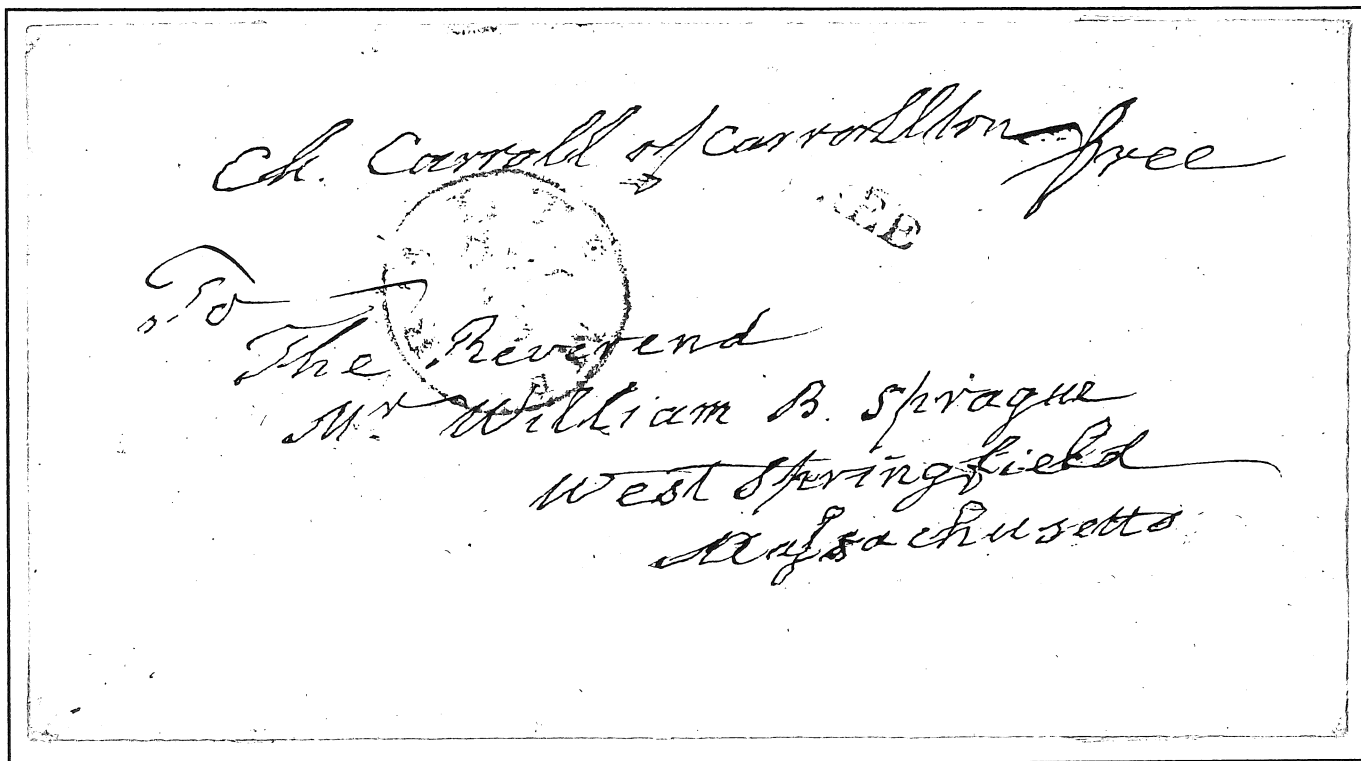 Ch. Carroll of Carrollton free
To
The Reverend
Mr William B. Sprague
West Springfield
Massachusetts